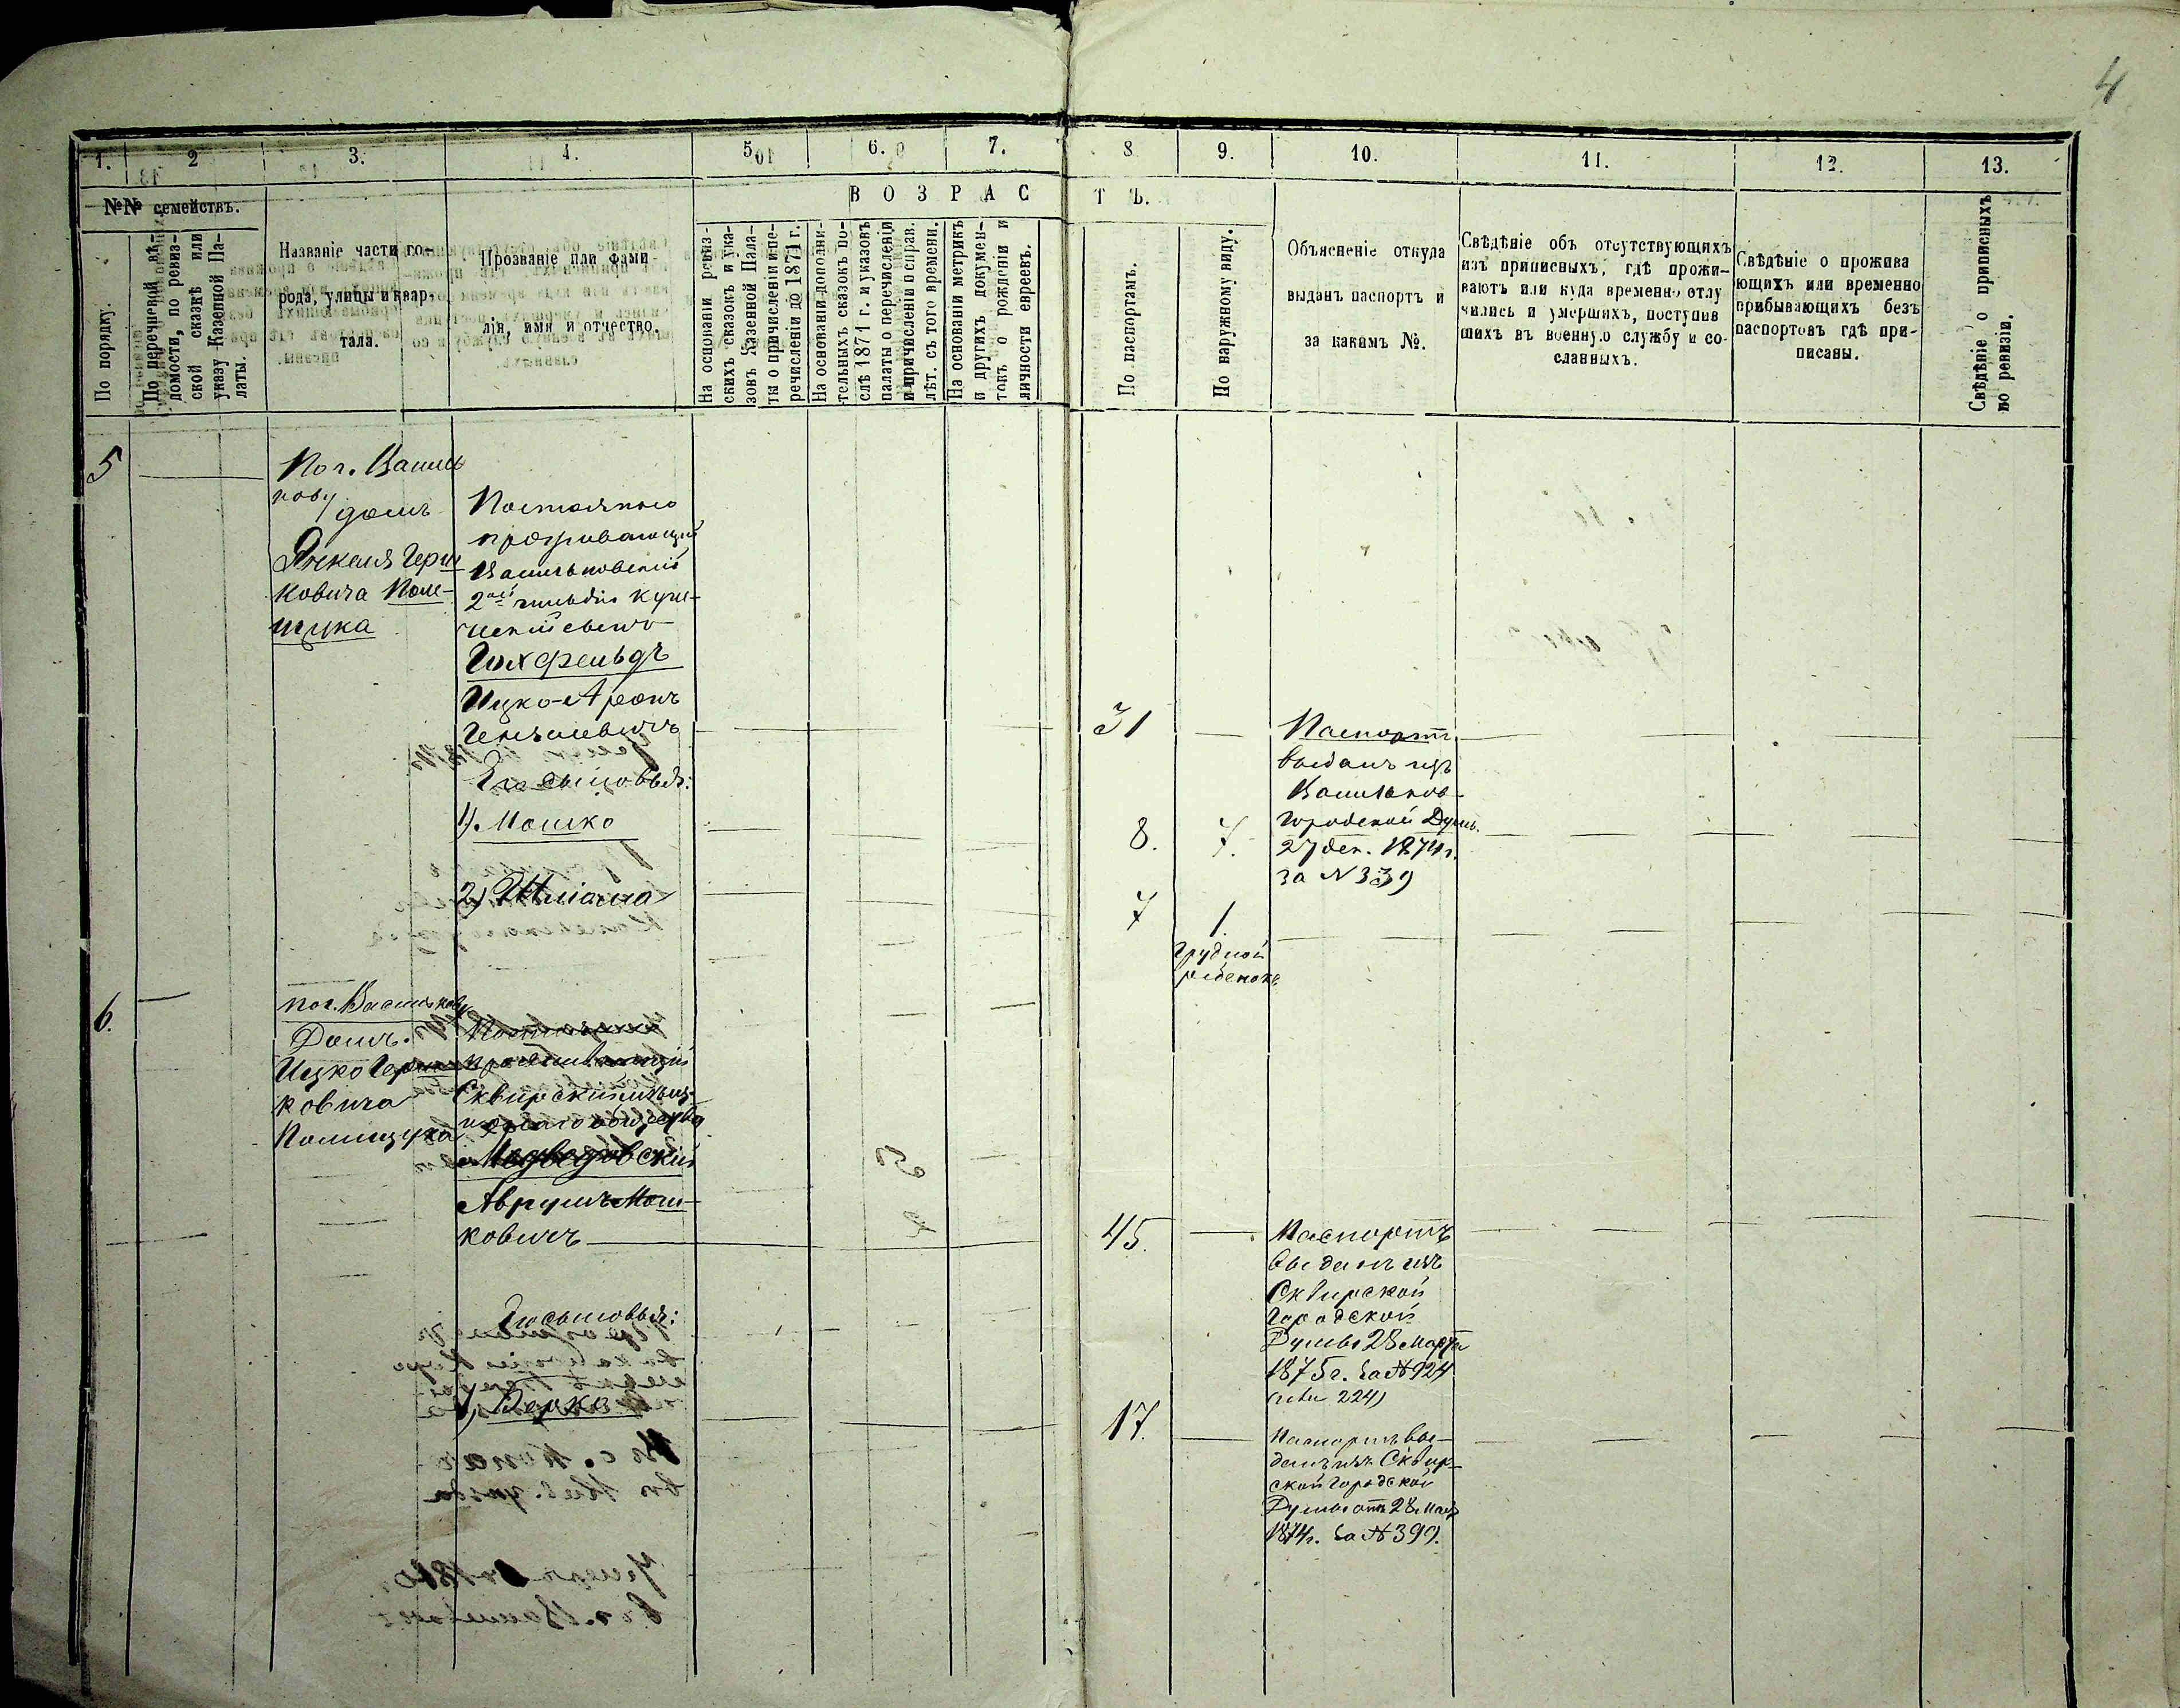 4
1.
2
3.
4.
5.
6.
7.
8
9.
10.
11.
12.
13.
№№ семействъ.
В О З Р А С Т Ъ.
По порядку.
По перечневой вѣ-
домости, по ревиз-
ской сказкѣ или
указу Казенной Па-
латы.
Названіе части го-
рода, улицы и квар-
тала.
Прозваніе или фами-
лія, имя и отчество.
На основаніи ревиз-
скихъ сказокъ и ука-
зовъ Казенной Пала-
ты о причисленіи и пе-
речисленіи до 1871 г.
На основаніи дополни-
тельныхъ сказокъ по-
слѣ 1871 г. и указовъ
палаты о перечисленіи
и причисленіи и справ.
лѣт. съ того времени.
На основаніи метрикъ
и другихъ докумен-
токъ о рожденіи и
личности евреевъ.
По паспортамъ.
По наружному виду.
Объясненіе откуда
выданъ паспортъ и
за какимъ №.
Свѣдѣніе объ отсутствующихъ
изъ приписныхъ, гдѣ прожи-
ваютъ или куда временно отлу
чились и умершихъ, поступив
шихъ въ военную службу и со-
сланныхъ.
Свѣдѣніе о прожива
ющихъ или временно
прибывающихъ безъ
паспортовъ гдѣ при-
писаны.
Свѣдѣніе о приписныхъ
по ревизіи.
5
Пог. Василь
кову
домъ
Янкеля Герш
ковича Поле-
щука
Постоянно
проживающій
Васильковскій
2ой гильдіи купе-
ческій сынъ
Гохфельдъ
Ицко-Аронъ
Гемшіевичъ
31
Паспортъ
выданъ изъ
Васильков-
Городской Думы
27 дек. 1874 г.
за N 339
Его сыновья:
1). Мошко
8.
7.
2) Шліома
7
1.
Грудной
ребенокъ
6.
пог. Василькову
Домъ.
Ицко Герш
ковича
Полищука
Постоянно
проживающій
Сквирскій мѣщ-
анскаго общества
Медведовскій
Аврумъ Мош-
ковичъ
45.
Паспортъ
выданъ изъ
Сквирской
Городской
Думы 28 Марта
1875 г. за № 924
224)
Его сыновья:
1) Берко
17.
Паспортъ вы-
данъ изъ Сквир-
ской Городской
Думы отъ 28 Мая
1874 г. за № 399.